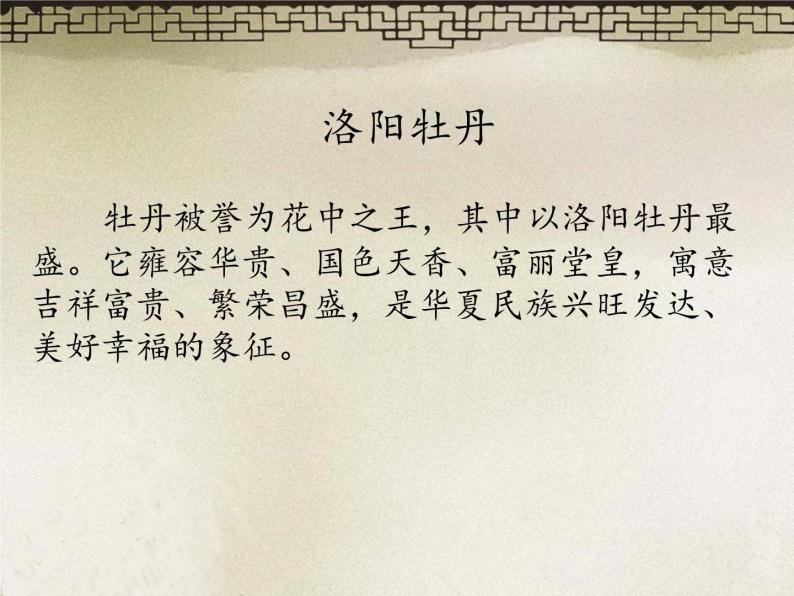 洛阳牡丹
牡丹被誉为花中之王，其中以洛阳牡丹最
盛。它雍容华贵、国色天香、富丽堂皇，寓意
吉祥富贵、繁荣昌盛，是华夏民族兴旺发达、
美好幸福的象征。